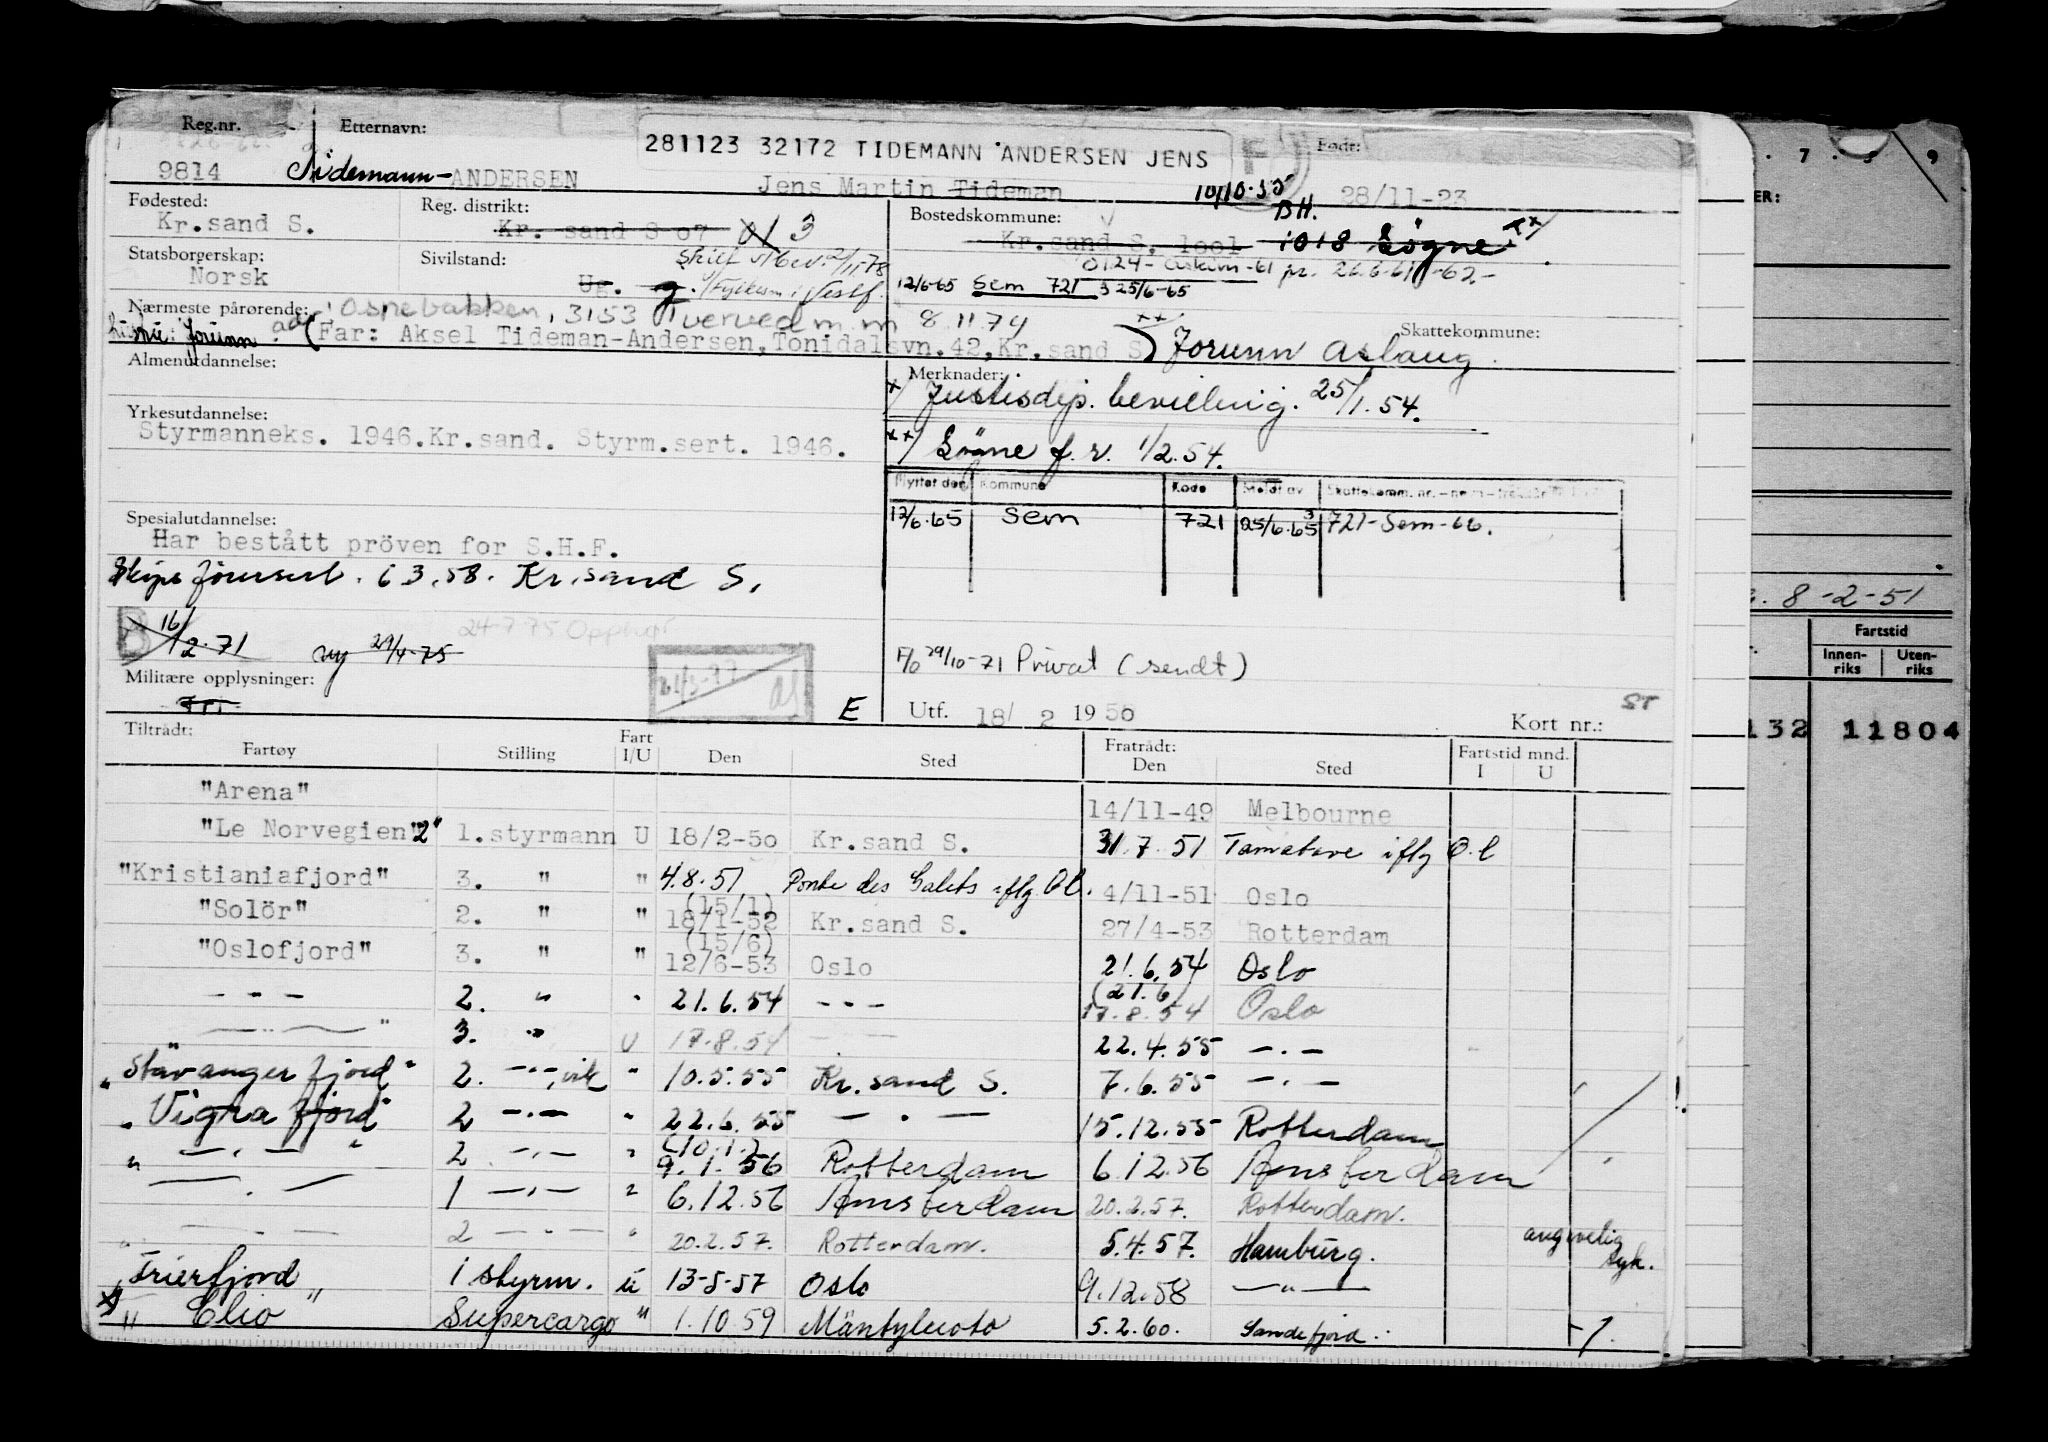 Reg.nr. Etternavn: 281123 32172 TIDEMANN ANDERSEN JENS Født:
9814 Tidemann-ANDERSEN Jens Martin Tideman 10/10-55 28/11-23
Fødested: Reg. distrikt: Bostedskommune: BH.
Kr.sand S. Kr. sand S 07 013 Kr.sand S. 1001 1018 Søgne xx/
Statsborgerskap: Sivilstand: 0124- Askim-61 26.6.61 -62-
Norsk Ug. g. 12/6-65 Sem 721 3 25/6-65
Nærmeste pårørende: Osnebakken, 3153 Tverved m.m 8.11.74 xx/ Skattekommune:
Jorunn (Far: Aksel Tideman-Andersen, Tonidalsvn.42, Kr.sand S) Jorunn Aslaug.
Almenutdannelse: Merknader:
x/ Justisdep. bevilling. 25/1.54.
Yrkesutdannelse:
Styrmanneks. 1946.Kr.sand. Styrm.sert. 1946.
xx/ Søgne f.r. 1/2.54.
Flyttet den Kommune Kode Meldt av
12/6.65 Sem 721 25/6.65 721-Sem-66.
Spesialutdannelse:
Har bestått pröven for S.H.F.
Skipsförersert. 6 3.58. Kr.sand S.
B 16/2.71 ny 29/4-75 24-7 75 Opphør
F/o 29/10-71 Privat (sendt)
Militære opplysninger:
E Utf. 18/ 2 1950 Kort nr.: ST
Tiltrådt: Fratrådt:
Fartøy Stilling Fart I/U Den Sted Den Sted Fartstid mnd. I U
"Arena" 14/11-49 Melbourne
"Le Norvegien" 2" 1.styrmann U 18/2-50 Kr.sand S. 31.7.51 Tamatave i flg O.l
"Kristianiafjord" 3. " " 4.8.51 Pointe des Galets i flg. O.l. 4/11-51 Oslo
"Solör" 2. " " (15/1) 18/1-52 Kr.sand S. 27/4-53 Rotterdam
"Oslofjord" 3. " " (15/6) 12/6-53 Oslo 21.6.54 Oslo
- " - 2. " " 21.6.54 - " - (21.6) 17.8.54 Oslo
- " - 3. " U 17.8.54 - - 22.4.55 - . -
"Stavangerfjord" 2. - " - vik " 10.5.55 Kr.sand S. 7.6.55 - . -
"Vigrafjord" 2 - . - " 22.6.55 - . - 15.12.55 Rotterdam
- . - " 2 - . - " (10.1.) 9.1.56 Rotterdam 6.12.56 Amsterdam
" - . - 1 - . - " 6.12.56 Amsterdam 20.2.57. Rotterdam.
- - - 2 - . - " 20.2.57. Rotterdam. 5.4.57. Hamburg. syk.
"Frierfjord" 1 styrm. U 13-5-57 Oslo 9.12.58 - " -
x) " Clio " Supercargo " 1.10.59 Mäntyluoto 5.2.60. Sandefjord. -1.
7 . 8 9
ER:
8-2-51
Fartstid
Innen-riks Uten-riks
132 11804